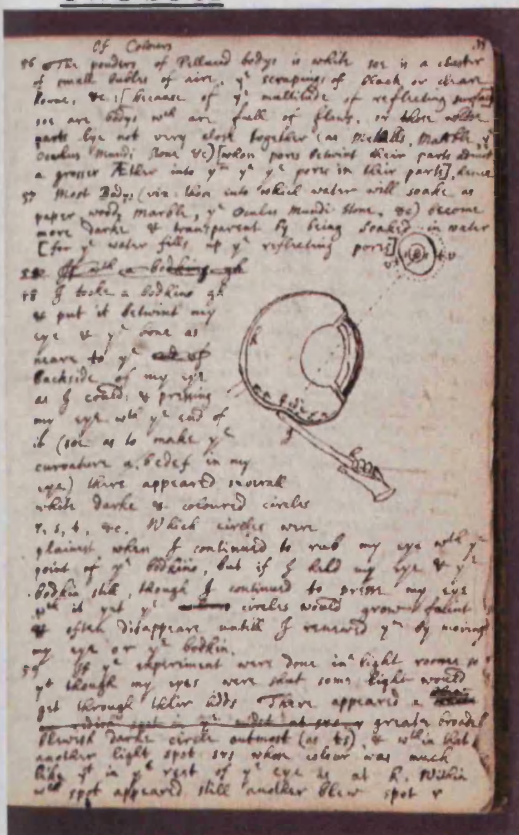 Of Colours
56 The pouders of Pellucid bodys is white soe is a cluster
of small bubles of aire, ye scrapings of black or cleare
horne, &c: [because of ye multitude of reflecting surfaces]
soe are bodys wch are full of flaws, or those whose
parts lye not very close together (as Metalls, Marble, ye
Oculus Mundi Stone &c) [whose pores betwixt their parts admit
a grosser Æther into ym yn ye pores in their parts], hence
57 Most Bodys (viz: those into which water will soake as
paper, wood, marble, ye Oculus Mundi Stone, &c) become
more darke & transparent by being soaked in water
[for ye water fills up ye reflecting pores]
58 If wth a bodkine gh
58 I tooke a bodkine gh
& put it betwixt my
eye & ye bone as
neare to ye end of
backside of my eye
as I could: & pressing
my eye wth ye end of
it (soe as to make ye
curvature a, bcdef in my
eye) there appeared severall
white darke & coloured circles
r, s, t, &c. Which circles were
plainest when I continued to rub my eye wth ye
point of ye bodkine, but if I held my eye & ye
bodkin still, though I continued to presse my eye
wth it yet ye circles would grow faint
& often disappeare untill I renewed ym by moving
my eye or ye bodkin.
59 If ye experiment were done in a light roome so
yt though my eyes were shut some light would
get through their lidds There appeared a
greate broade
blewish darke circle outmost (as ts), & wthin that
another light spot srs whose colour was much
like yt in ye rest of ye eye as at k. Within
wch spot appeared still another blew spot r